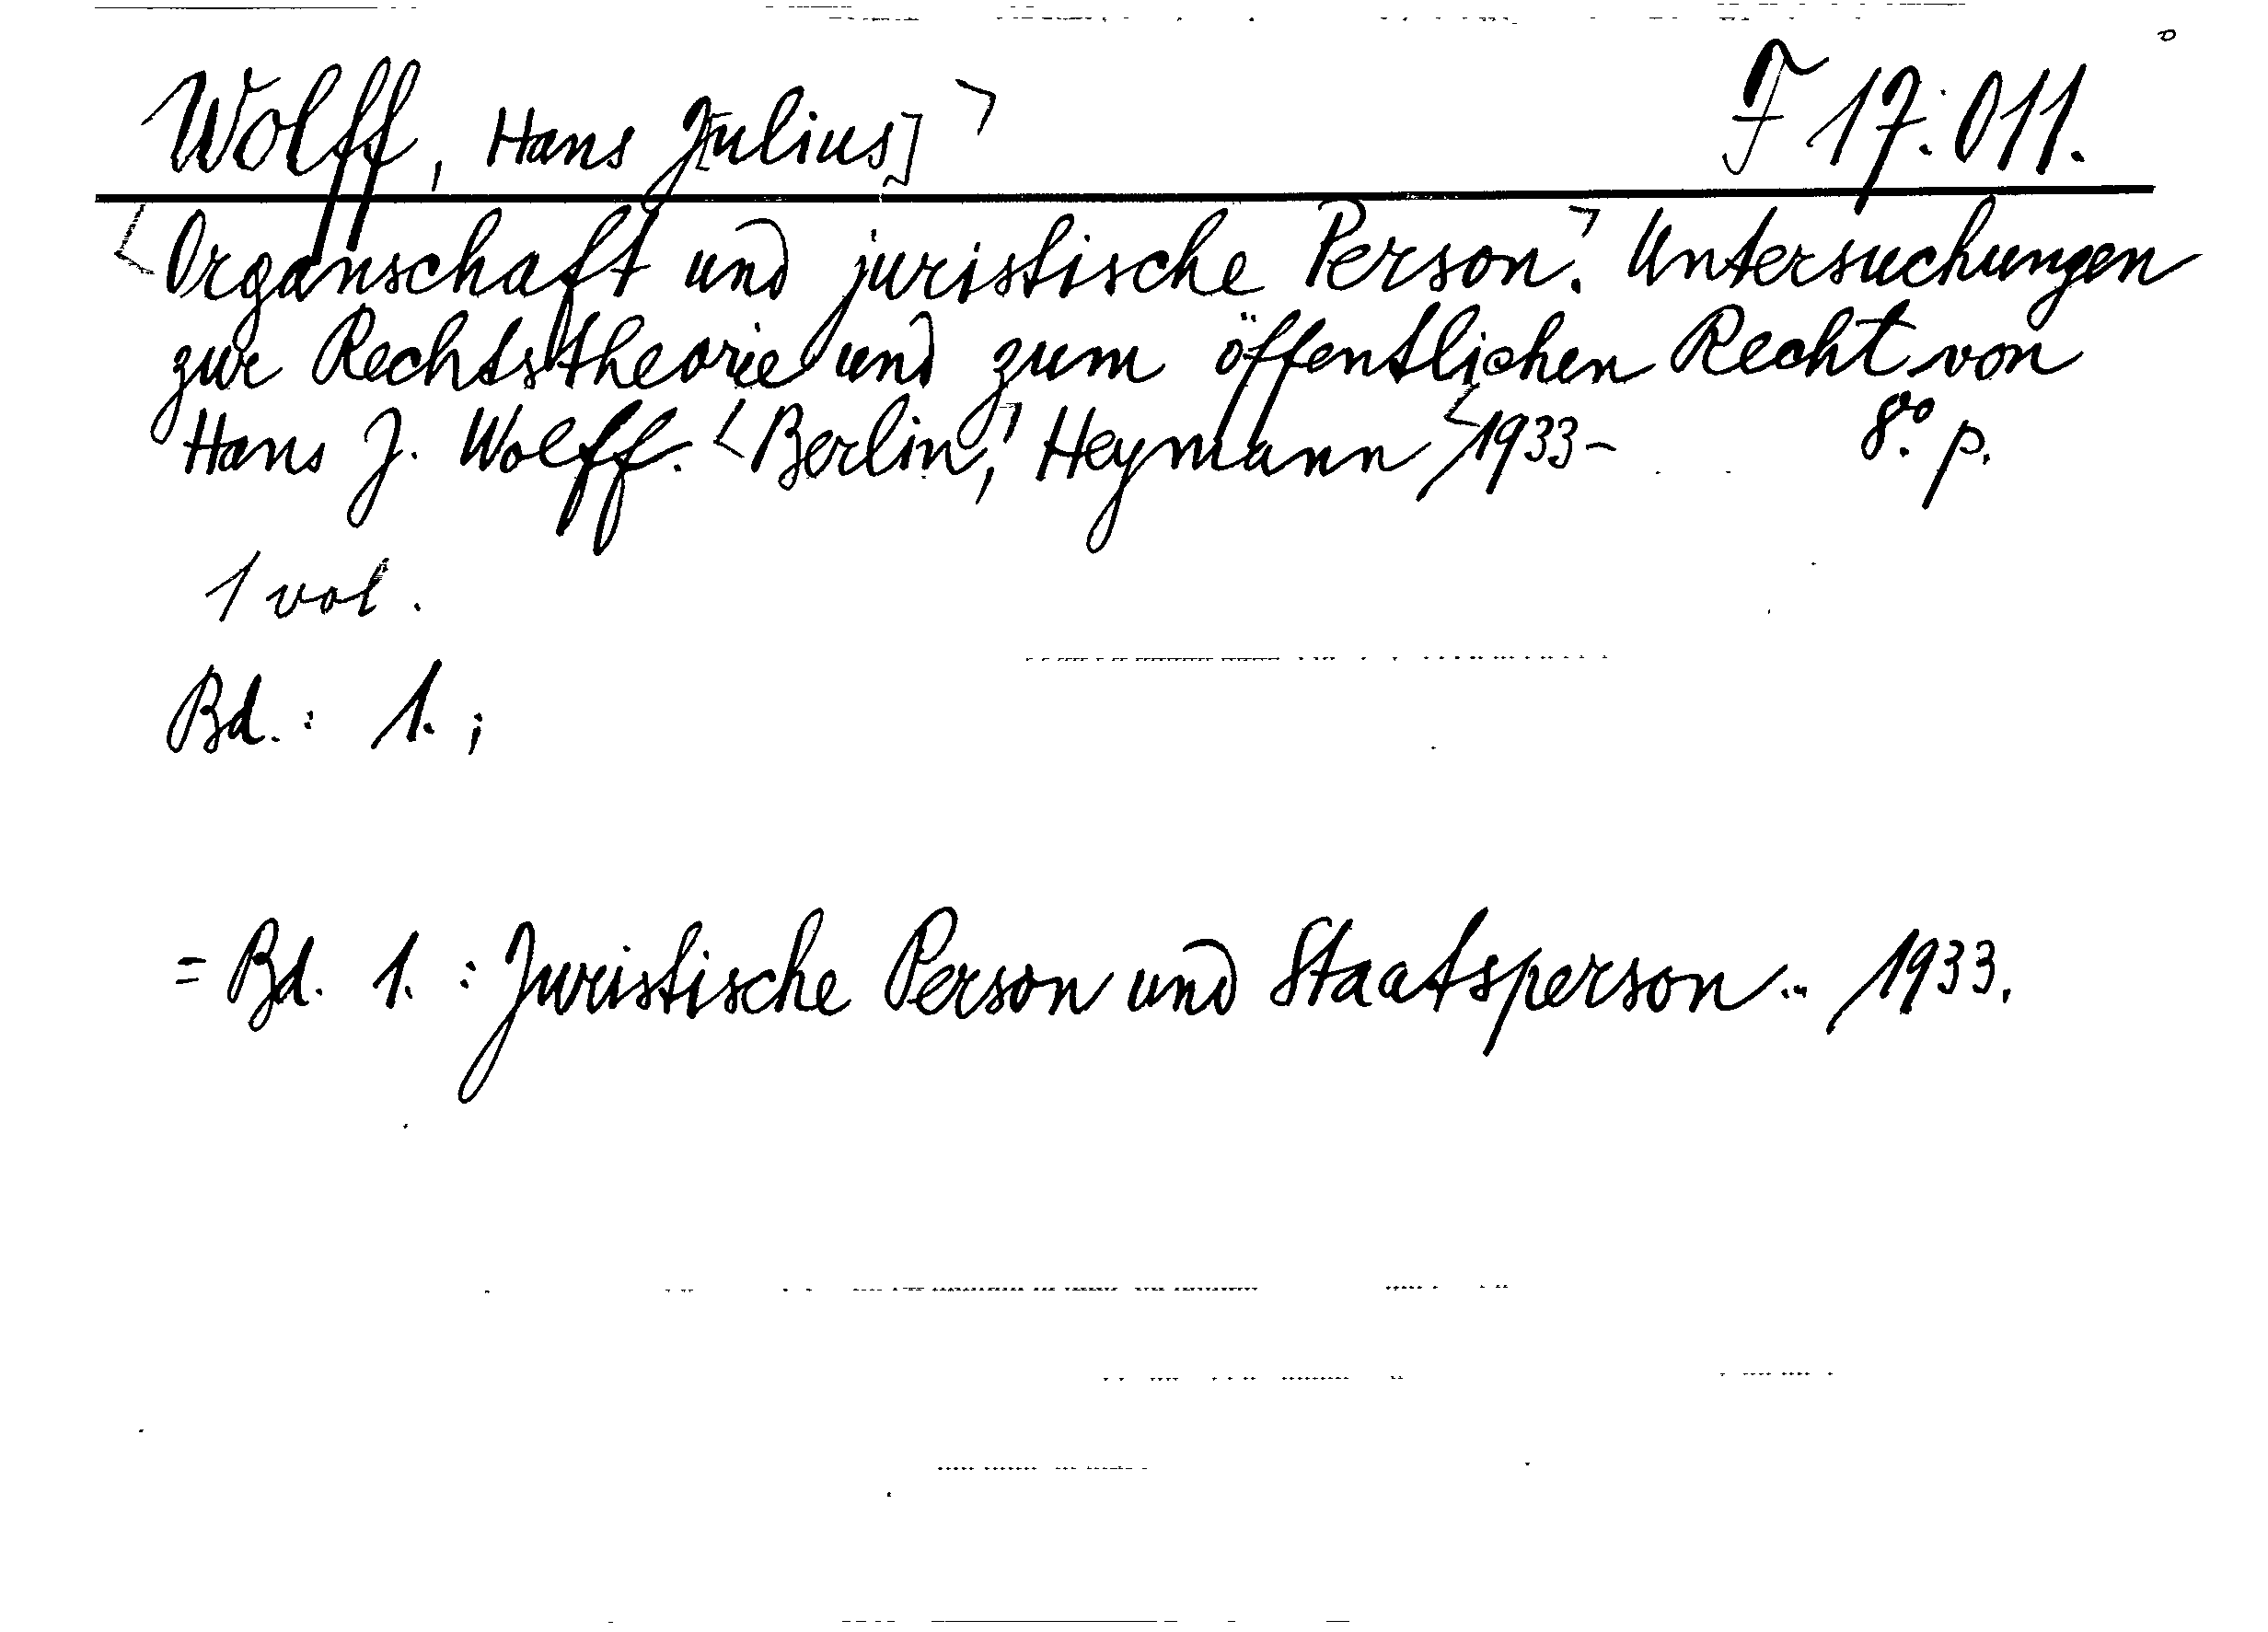 Wolff, Hans J[ulius] F 17.011.
Organschaft und juristische Person. Untersuchungen
zur Rechtstheorie und zum öffentlichen Recht von
Hans J. Wolff. Berlin, Heymann 1933- 8º p.
1 vol.
Bd.: 1.;
= Bd. 1.: Juristische Person und Staatsperson.. 1933.